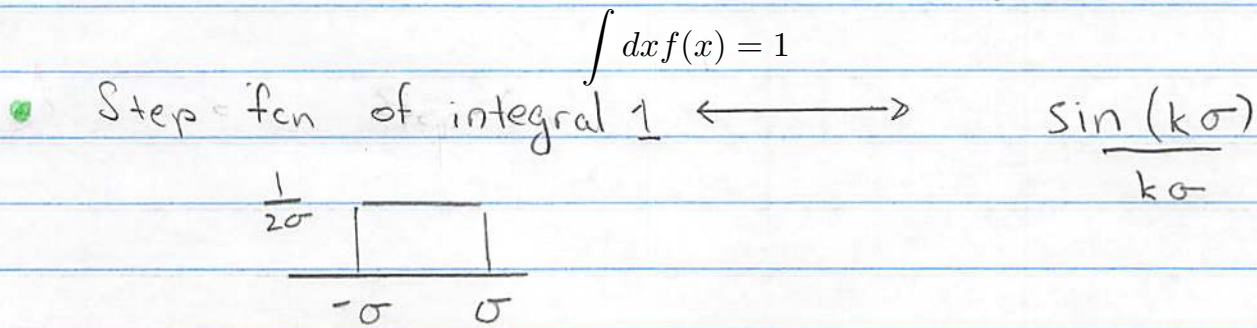 ∫ dx f(x) = 1
Step fcn of integral 1 ⟷ sin (kσ)
kσ
1
2σ
-σ σ